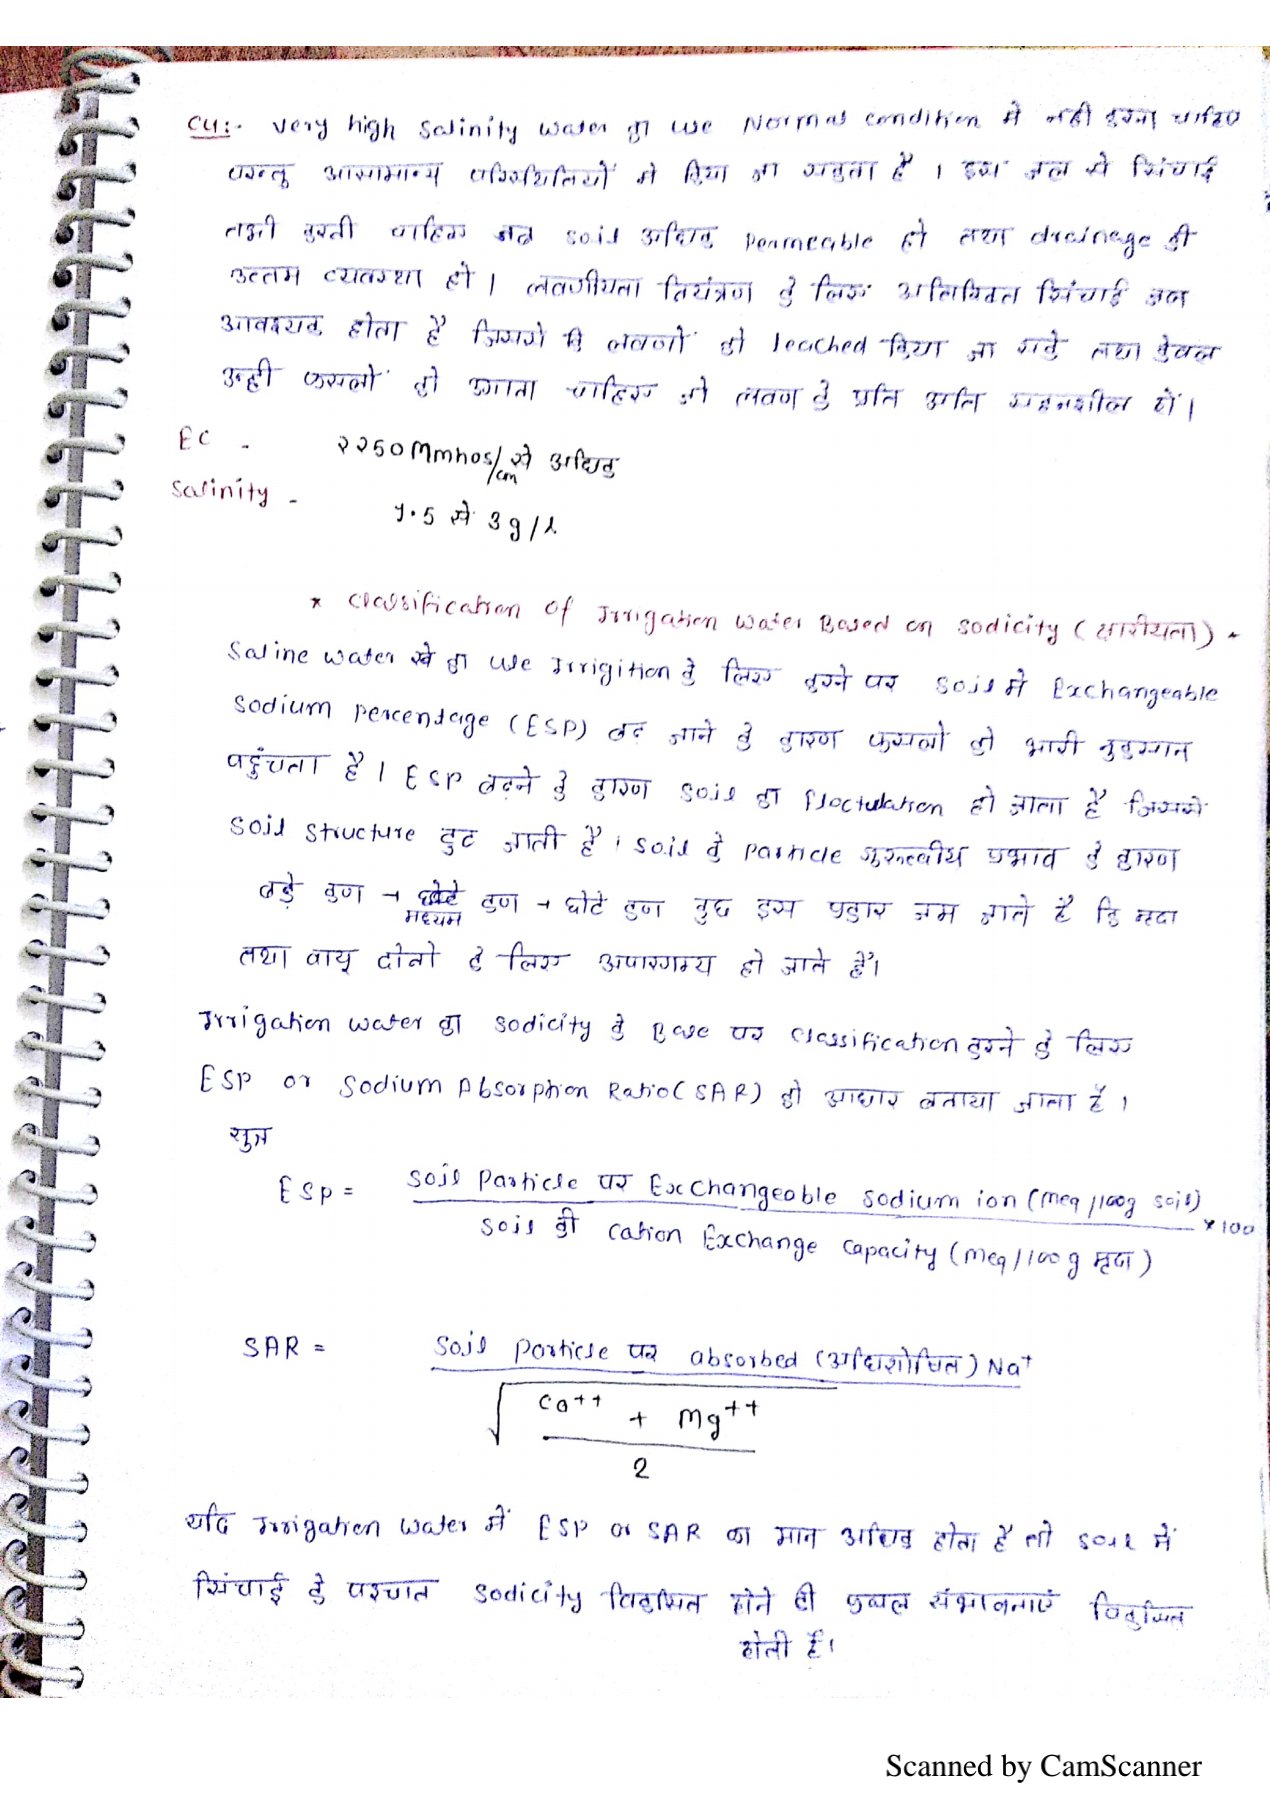 C4:- Very high Salinity Water का use Normal condition मे नही करना चाहिए
परन्तु आसामान्य परिस्थितियों मे किया जा सकता है । इस जल से सिंचाई
तभी करनी चाहिए जब soil अधिक Permeable हो तथा drainage की
उत्तम व्यवस्था हो । लवणीयता नियंत्रण के लिए अतिरिक्त सिंचाई जल
आवश्यक होता है जिससे कि लवणों को leached किया जा सके तथा केवल
उन्ही फसलों को उगाना चाहिए जो लवण के प्रति अति सहनशील हो ।
EC - २२50 Mmhos/cm से अधिक
Salinity - 1.5 से 3 g/l
* Classification of Irrigation Water Based on Sodicity (क्षारीयता) -
Saline water का use Irrigition के लिए करने पर soil मे Exchangeable
Sodium Percentage (ESP) बढ़ जाने के कारण फसलो को भारी नुकसान
पहुंचता है । ESP बढ़ने के कारण soil का Floctulation हो जाता है जिससे
soil structure टुट जाती है । soil के Particle गुरुत्वीय प्रभाव के कारण
बड़े कण → मध्यम कण → छोटे कण कुछ इस प्रकार जम जाते है कि मृदा
तथा वायू दोनो के लिए अपारगम्य हो जाते है।
Irrigation water का sodicity के Base पर classification करने के लिए
ESP or Sodium Absorption Ratio (SAR) को आधार बनाया जाता है ।
सुत्र
ESP = soil Particle पर Exchangeable sodium ion (meq/100g soil)
× 100
soil की Cation Exchange Capacity (meq/100g मृदा)
SAR = Soil Particle पर absorbed (अधिशोषित) Na⁺
√ Ca⁺⁺ + Mg⁺⁺
2
यदि Irrigation Water में ESP or SAR का मान अधिक होता है तो soil में
सिंचाई के पश्चात sodicity विकसित होने की प्रबल संभावनाएं विकसित
होती है।
Scanned by CamScanner